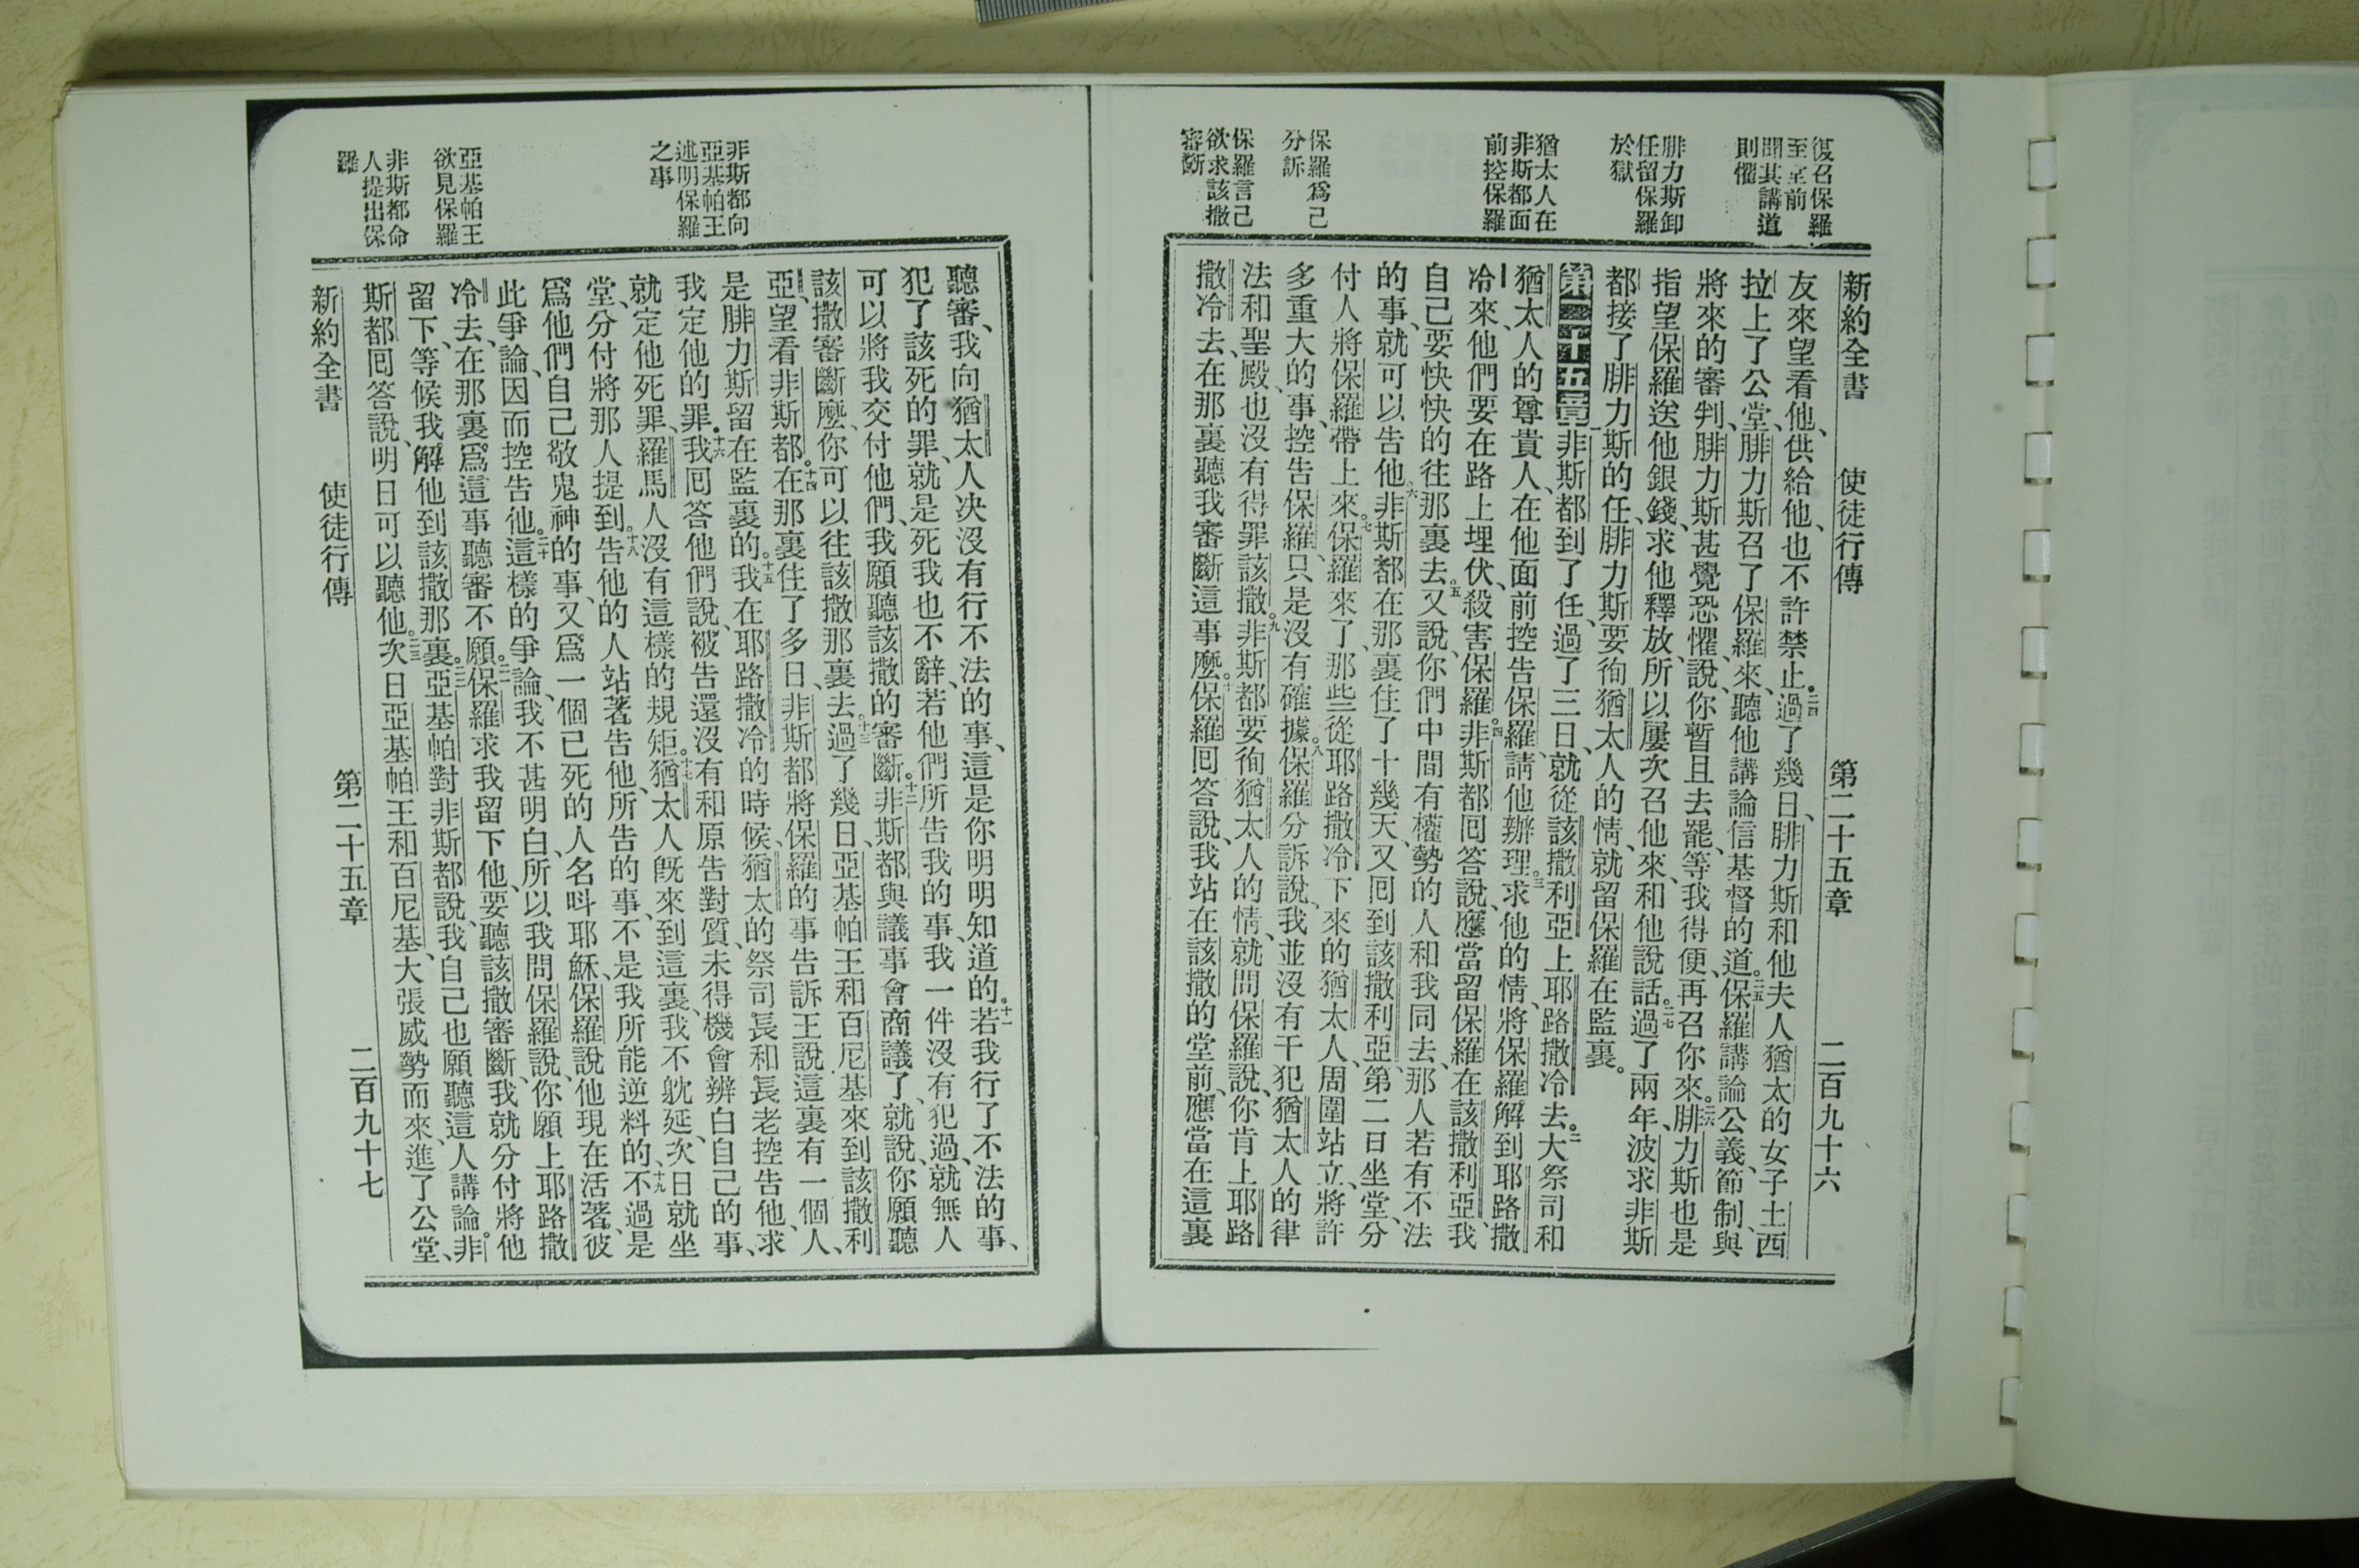 新約全書 使徒行傳 第二十五章 二百九十六
復召保羅
至堂前
聞其講道
則懼
腓力斯卸
任留保羅
於獄
猶太人在
非斯都面
前控保羅
保羅爲己
分訴
保羅言己
欲求該撒
審斷
友來望看他、供給他、也不許禁止。二四過了幾日、腓力斯和他夫人猶太的女子土西
拉上了公堂、腓力斯召了保羅來、聽他講論信基督的道。二五保羅講論公義、節制、與
將來的審判、腓力斯甚覺恐懼、說、你暫且去罷、等我得便、再召你來。二六腓力斯也是
指望保羅送他銀錢、求他釋放、所以屢次召他來、和他說話。二七過了兩年、波求非斯
都接了腓力斯的任、腓力斯要徇猶太人的情、就留保羅在監裏。
第二十五章 一非斯都到了任、過了三日、就從該撒利亞上耶路撒冷去。二大祭司和
猶太人的尊貴人、在他面前控告保羅、請他辦理。三求他的情、將保羅解到耶路撒
冷來、他們要在路上埋伏、殺害保羅。四非斯都回答說、應當留保羅在該撒利亞、我
自己要快快的往那裏去。五又說、你們中間有權勢的人和我同去、那人若有不法
的事、就可以告他。六非斯都在那裏住了十幾天、又回到該撒利亞、第二日坐堂、分
付人將保羅帶上來。七保羅來了、那些從耶路撒冷下來的猶太人、周圍站立、將許
多重大的事、控告保羅、只是沒有確據。八保羅分訴說、我並沒有干犯猶太人的律
法和聖殿、也沒有得罪該撒。九非斯都要徇猶太人的情、就問保羅說、你肯上耶路
撒冷去、在那裏聽我審斷這事麼。十保羅回答說、我站在該撒的堂前、應當在這裏
非斯都向
亞基帕王
述明保羅
之事
亞基帕王
欲見保羅
非斯都命
人提出保
羅
聽審、我向猶太人决沒有行不法的事、這是你明明知道的。十一若我行了不法的事、
犯了該死的罪、就是死我也不辭、若他們所告我的事、我一件沒有犯過、就無人
可以將我交付他們、我願聽該撒的審斷。十二非斯都與議事會商議了、就說、你願聽
該撒審斷麼、你可以往該撒那裏去。十三過了幾日、亞基帕王和百尼基來到該撒利
亞、望看非斯都。十四在那裏住了多日、非斯都將保羅的事告訴王說、這裏有一個人、
是腓力斯留在監裏的。十五我在耶路撒冷的時候、猶太的祭司長和長老控告他、求
我定他的罪。十六我回答他們說、被告還沒有和原告對質、未得機會辨白自己的事、
就定他死罪、羅馬人沒有這樣的規矩。十七猶太人旣來到這裏、我不躭延、次日就坐
堂、分付將那人提到。十八告他的人站著告他、所告的事、不是我所能逆料的、十九不過是
爲他們自己敬鬼神的事、又爲一個已死的人名呌耶穌、保羅說他現在活著、彼
此爭論、因而控告他。二十這樣的爭論、我不甚明白、所以我問保羅說、你願上耶路撒
冷去、在那裏爲這事聽審不願。二一保羅求我留下他、要聽該撒審斷、我就分付將他
留下、等候我解他到該撒那裏。二二亞基帕對非斯都說、我自己也願聽這人講論。非
斯都回答說、明日可以聽他。二三次日亞基帕王和百尼基、大張威勢而來、進了公堂、
新約全書 使徒行傳 第二十五章 二百九十七